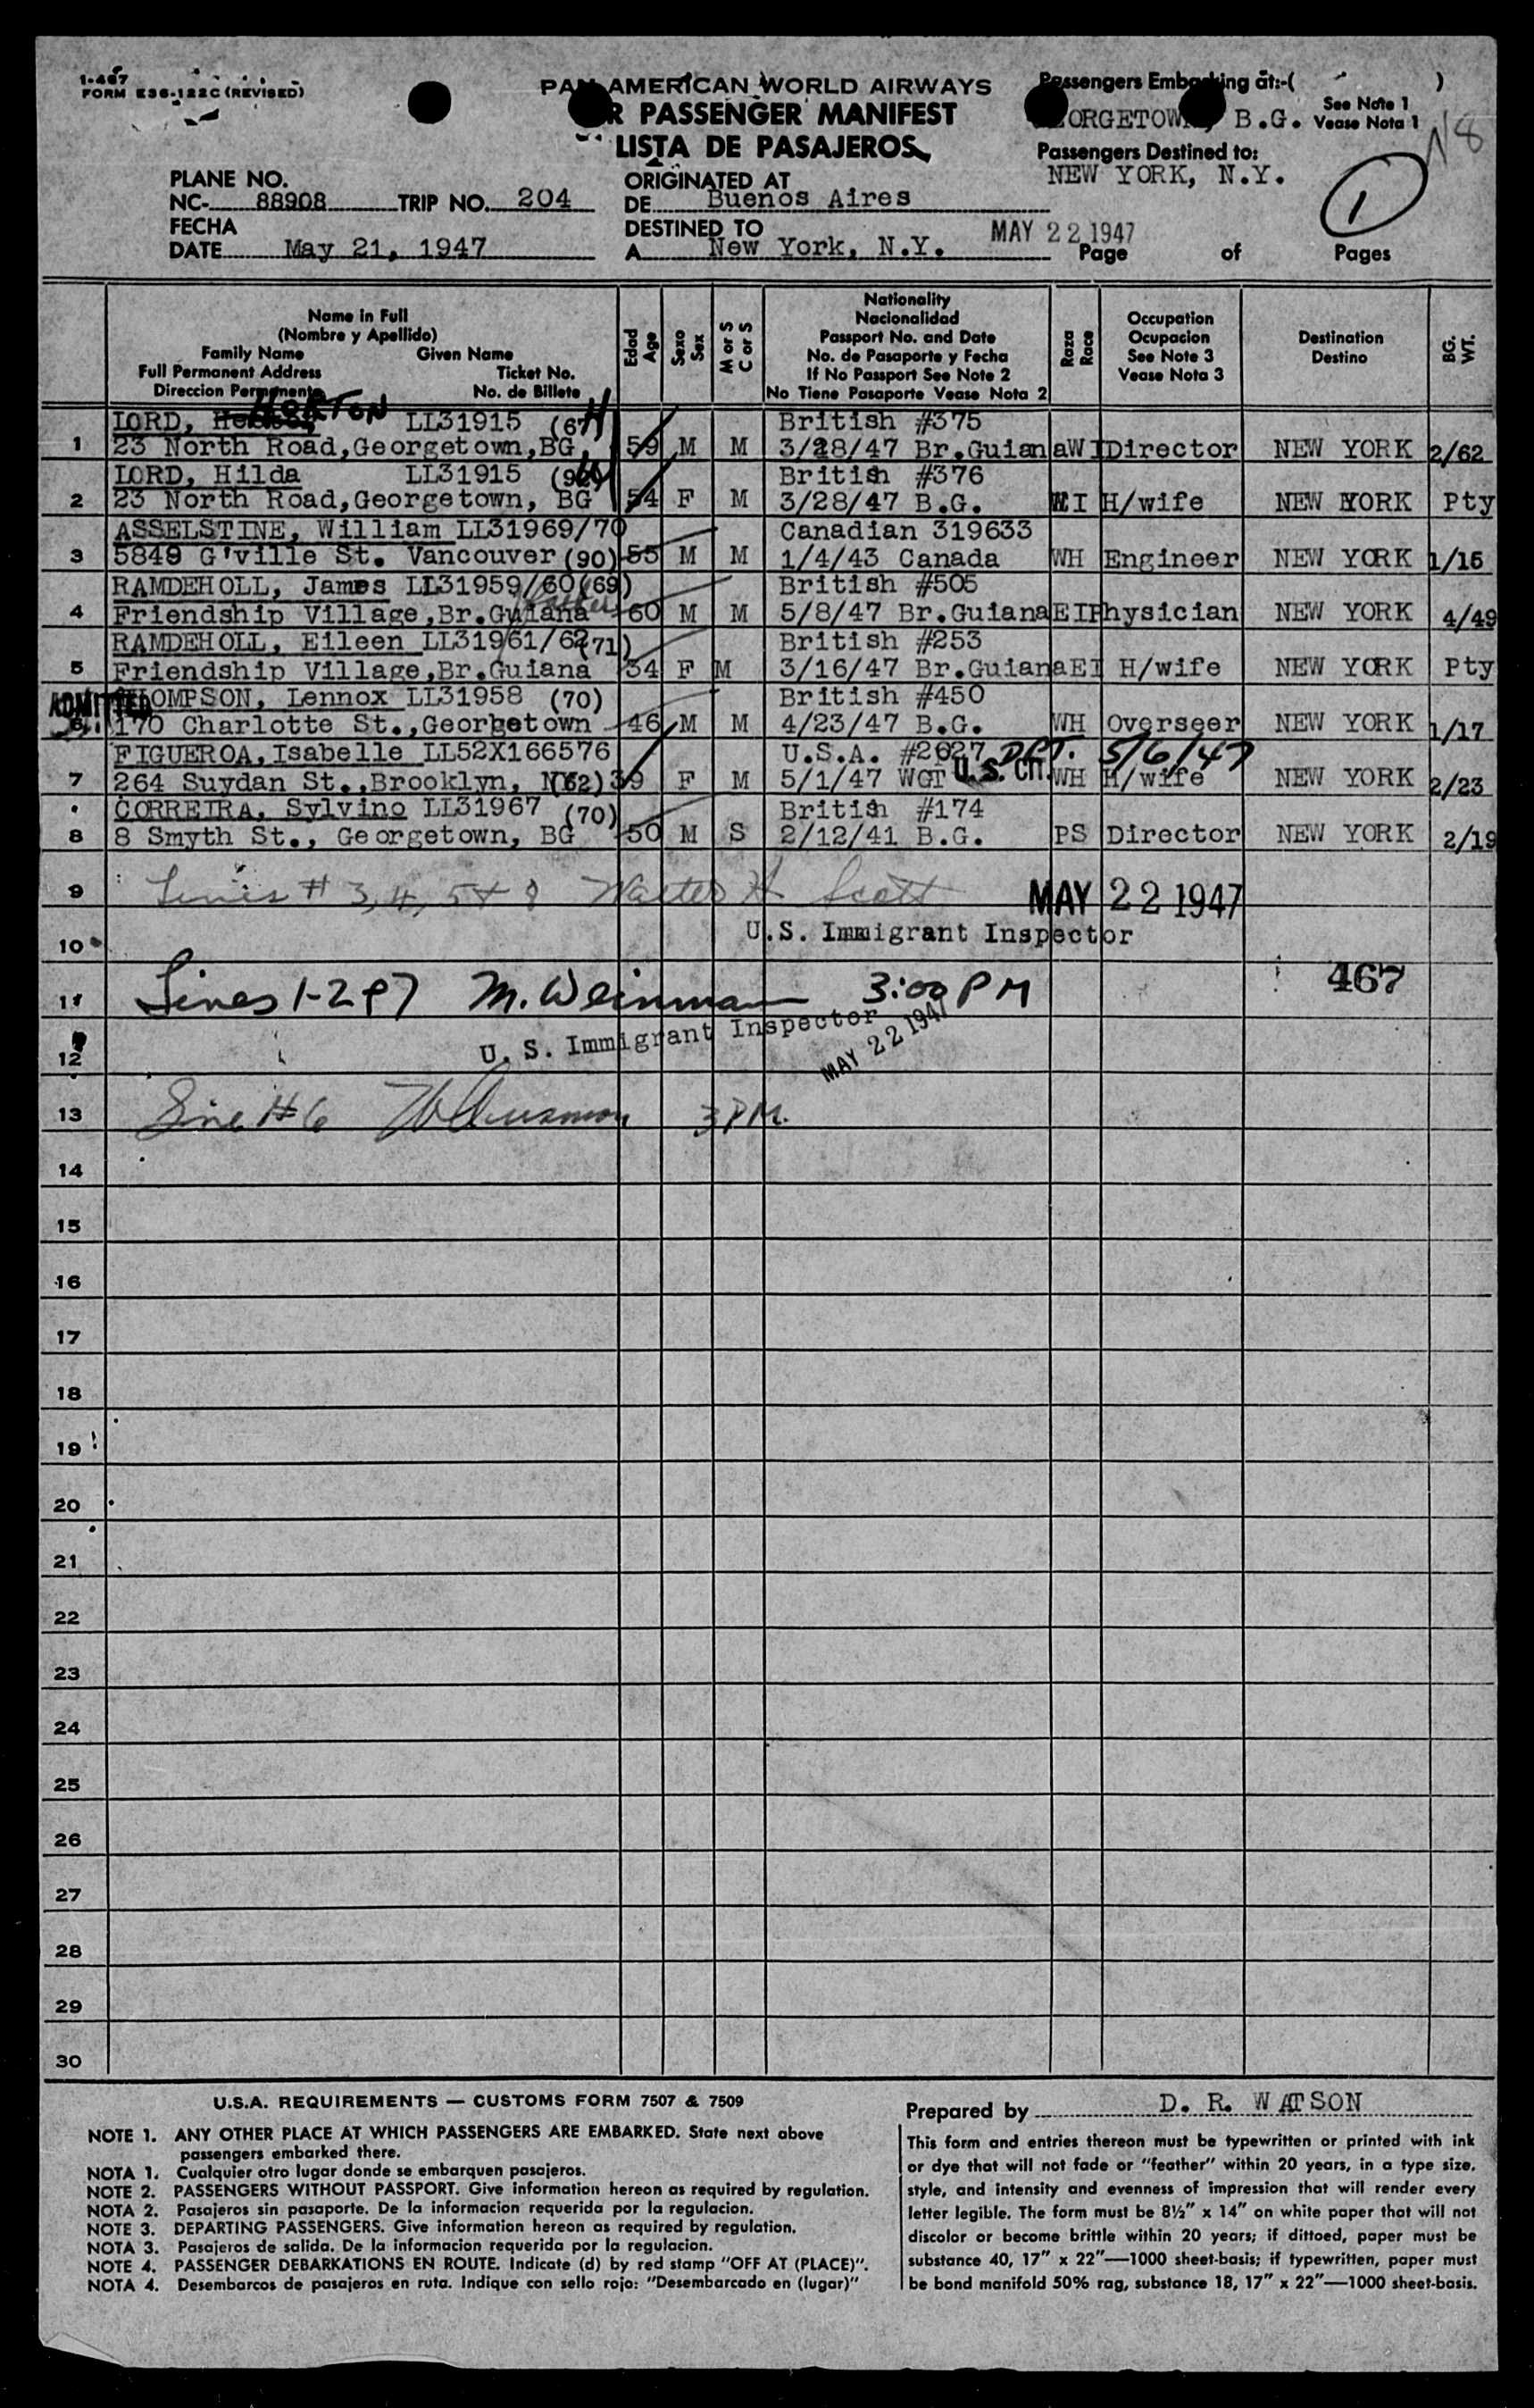 1-467
FORM E36-122C (REVISED)
PAN AMERICAN WORLD AIRWAYS
R PASSENGER MANIFEST
LISTA DE PASAJEROS
Passengers Embarking at:-( )
ORGETOWN, B.G.
See Note 1
Vease Nota 1
Passengers Destined to:
NEW YORK, N.Y.
1
PLANE NO.
NC- 88908 TRIP NO. 204
FECHA
DATE May 21, 1947
ORIGINATED AT
DE Buenos Aires
DESTINED TO
A New York, N.Y.
MAY 22 1947
Page of Pages
Name in Full
(Nombre y Apellido)
Family Name Given Name
Full Permanent Address Ticket No.
Direccion Permanente No. de Billete
Edad Age
Sexo Sex
M or S C or S
Nationality
Nacionalidad
Passport No. and Date
No. de Pasaporte y Fecha
If No Passport See Note 2
No Tiene Pasaporte Vease Nota 2
Raza Race
Occupation
Ocupacion
See Note 3
Vease Nota 3
Destination
Destino
BG. WT.
LORD, HORTON LL31915 (67) British #375
1 23 North Road,Georgetown,BG, 59 M M 3/28/47 Br.Guiana WI Director NEW YORK 2/62
LORD, Hilda LL31915 British #376
2 23 North Road,Georgetown, BG 54 F M 3/28/47 B.G. WI H/wife NEW YORK Pty
ASSELSTINE, William LL31969/70 Canadian 319633
3 5849 G'ville St. Vancouver (90) 55 M M 1/4/43 Canada WH Engineer NEW YORK 1/15
RAMDEHOLL, James LL31959/60(69) British #505
4 Friendship Village,Br.Guiana 60 M M 5/8/47 Br.Guiana EI Physician NEW YORK 4/49
RAMDEHOLL, Eileen LL31961/62(71) British #253
5 Friendship Village,Br.Guiana 34 F M 3/16/47 Br.Guiana EI H/wife NEW YORK Pty
ADMITTED OMPSON, Lennox LL31958 (70) British #450
170 Charlotte St.,Georgetown 46 M M 4/23/47 B.G. WH Overseer NEW YORK 1/17
FIGUEROA,Isabelle LL52X166576 U.S.A. #2627 DPT. 5/6/47
7 264 Suydan St.,Brooklyn, NY (62) 39 F M 5/1/47 WGT U.S. CIT. WH H/wife NEW YORK 2/23
CORREIRA, Sylvino LL31967 (70) British #174
8 8 Smyth St., Georgetown, BG 50 M S 2/12/41 B.G. PS Director NEW YORK 2/19
9 Lines # 3, 4, 5 + 8 Walter H Scott MAY 22 1947
U.S. Immigrant Inspector
10
467
11 Lines 1-2 + 7 M. Weinman 3:00 PM
U. S. Immigrant Inspector
MAY 22 1947
12
13 Line #6 3 PM.
14
15
16
17
18
19
20
21
22
23
24
25
26
27
28
29
30
U.S.A. REQUIREMENTS — CUSTOMS FORM 7507 & 7509
NOTE 1. ANY OTHER PLACE AT WHICH PASSENGERS ARE EMBARKED. State next above
passengers embarked there.
NOTA 1. Cualquier otro lugar donde se embarquen pasajeros.
NOTE 2. PASSENGERS WITHOUT PASSPORT. Give information hereon as required by regulation.
NOTA 2. Pasajeros sin pasaporte. De la informacion requerida por la regulacion.
NOTE 3. DEPARTING PASSENGERS. Give information hereon as required by regulation.
NOTA 3. Pasajeros de salida. De la informacion requerida por la regulacion.
NOTE 4. PASSENGER DEBARKATIONS EN ROUTE. Indicate (d) by red stamp "OFF AT (PLACE)".
NOTA 4. Desembarcos de pasajeros en ruta. Indique con sello rojo: "Desembarcado en (lugar)"
Prepared by D. R. WATSON
This form and entries thereon must be typewritten or printed with ink
or dye that will not fade or "feather" within 20 years, in a type size,
style, and intensity and evenness of impression that will render every
letter legible. The form must be 8½" x 14" on white paper that will not
discolor or become brittle within 20 years; if dittoed, paper must be
substance 40, 17" x 22"—1000 sheet-basis; if typewritten, paper must
be bond manifold 50% rag, substance 18, 17" x 22"—1000 sheet-basis.